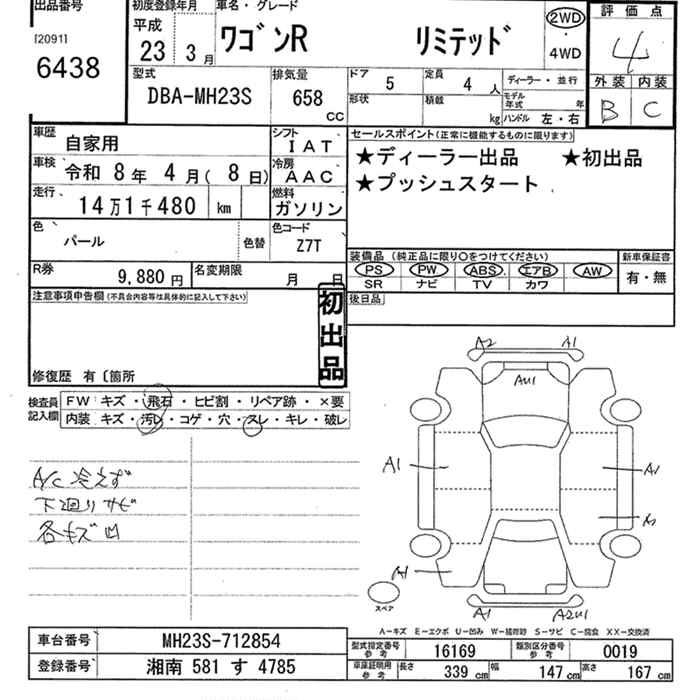 出品番号
[2091]
6438
初度登録年月
平成
23年 3月
車名・グレード
ワゴンR リミテッド
2WD
・
4WD
評価点
4
外装 内装
B C
型式
DBA-MH23S
排気量
658 CC
ドア 5
定員 4人
ディーラー・並行
形状
積載 kg
モデル年式 年
ハンドル 左・右
車歴 自家用
シフト IAT
セールスポイント(正常に機能するものに限ります)
★ディーラー出品 ★初出品
★プッシュスタート
車検 令和 8年 4月( 8日)
冷房 AAC
走行 14万1千480 km
燃料 ガソリン
色 パール
色替
色コード Z7T
装備品 (純正品に限り○をつけてください)
PS PW ABS エアB AW
SR ナビ TV カワ
新車保証書
有・無
R券 9,880円
名変期限 月 日
後日品
注意事項申告欄(不具合内容等は具体的に記入して下さい)
初出品
修復歴 有〔箇所
検査員記入欄
FW キズ・飛石・ヒビ割・リペア跡・×要
内装 キズ・汚レ・コゲ・穴・スレ・キレ・破レ
A/C 冷えず
下廻りサビ
各キズ凹
A2 A1
AU1
A1
A1
A1
A1 A2U1
スペア
A-キズ E-エクボ U-凹み W-補修跡 S-サビ C-腐食 XX-交換済
車台番号 MH23S-712854
登録番号 湘南 581 す 4785
型式指定番号 参考 16169
類別区分番号 参考 0019
車庫証明用 参考 長さ 339cm 幅 147cm 高さ 167cm